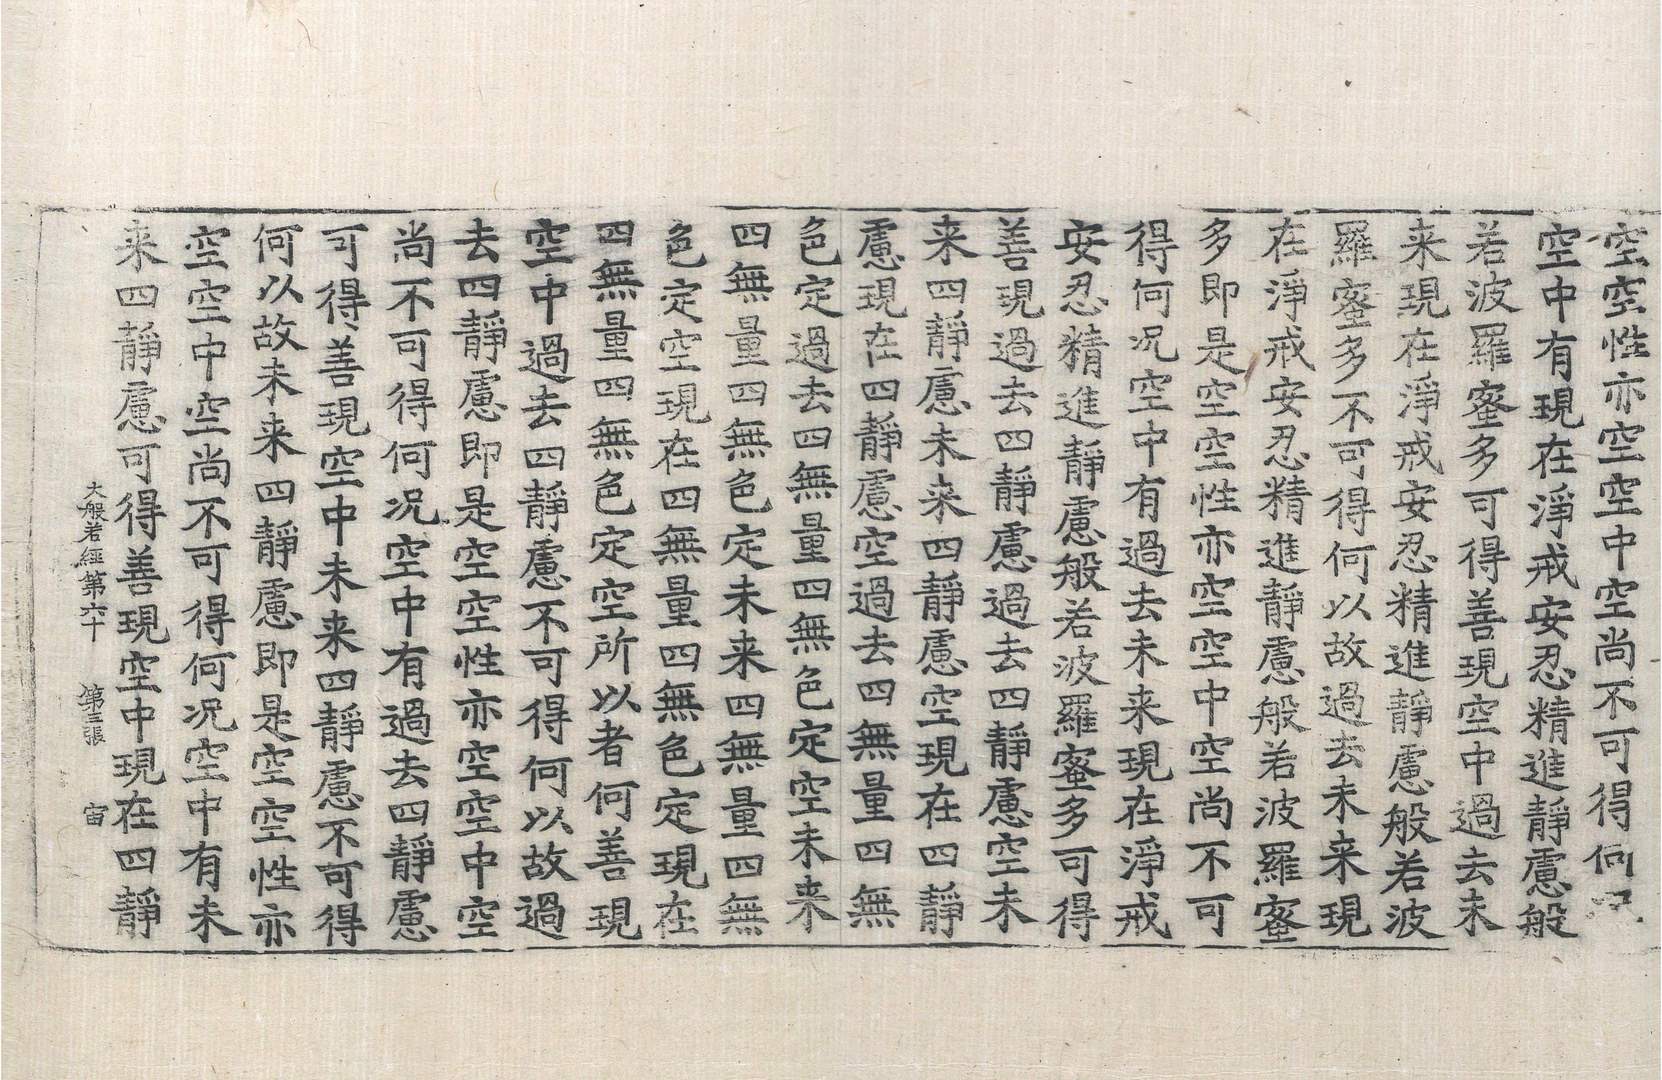 空空性亦空空空中空尚不可得何况
空中有現在淨戒安忍精進靜慮般
若波羅蜜多可得善現空中過去未
来現在淨戒安忍精進靜慮般若波
羅蜜多不可得何以故過去未来現
在淨戒安忍精進靜慮般若波羅蜜
多即是空空性亦空空中空尚不可
得何况空中有過去未来現在淨戒
安忍精進靜慮般若波羅蜜多可得
善現過去四靜慮過去四靜慮空未
来四靜慮未来四靜慮空現在四靜
慮現在四靜慮空過去四無量四無
色定過去四無量四無色定空未来
四無量四無色定未来四無量四無
色定空現在四無量四無色定現在
四無量四無色定空所以者何善現
空中過去四靜慮不可得何以故過
去四靜慮即是空空性亦空空中空
尚不可得何况空中有過去四靜慮
可得善現空中未来四靜慮不可得
何以故未来四靜慮即是空空性亦
空空中空尚不可得何况空中有未
来四靜慮可得善現空中現在四靜
大般若經第六十 第三張 宙